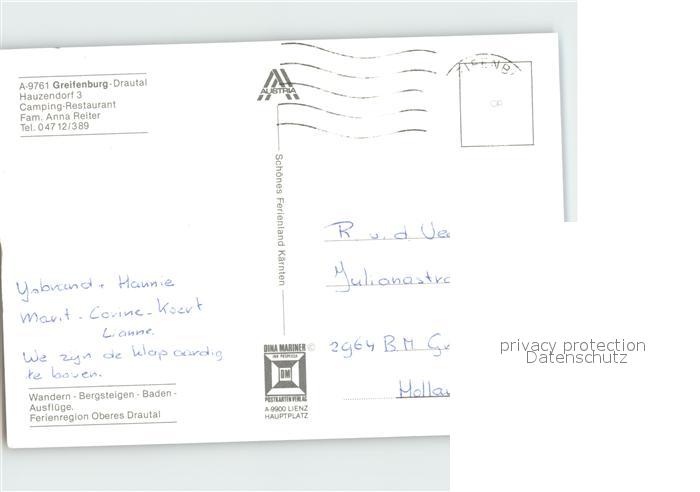 A-9761 Greifenburg-Drautal
Hauzendorf 3
Camping-Restaurant
Fam. Anna Reiter
Tel. 047 12/389
AUSTRIA
Schönes Ferienland Kärnten
R. v. d. Vee
Julianastra
2964 B.M. G
Holla
Ysbrand + Hannie
Marit - Corine - Koert
Lianne.
We zijn de klap aardig
te boven.
Wandern - Bergsteigen - Baden -
Ausflüge.
Ferienregion Oberes Drautal
DINA MARINER ©
DM
POSTKARTENVERLAG
A-9900 LIENZ
HAUPTPLATZ
privacy protection
Datenschutz